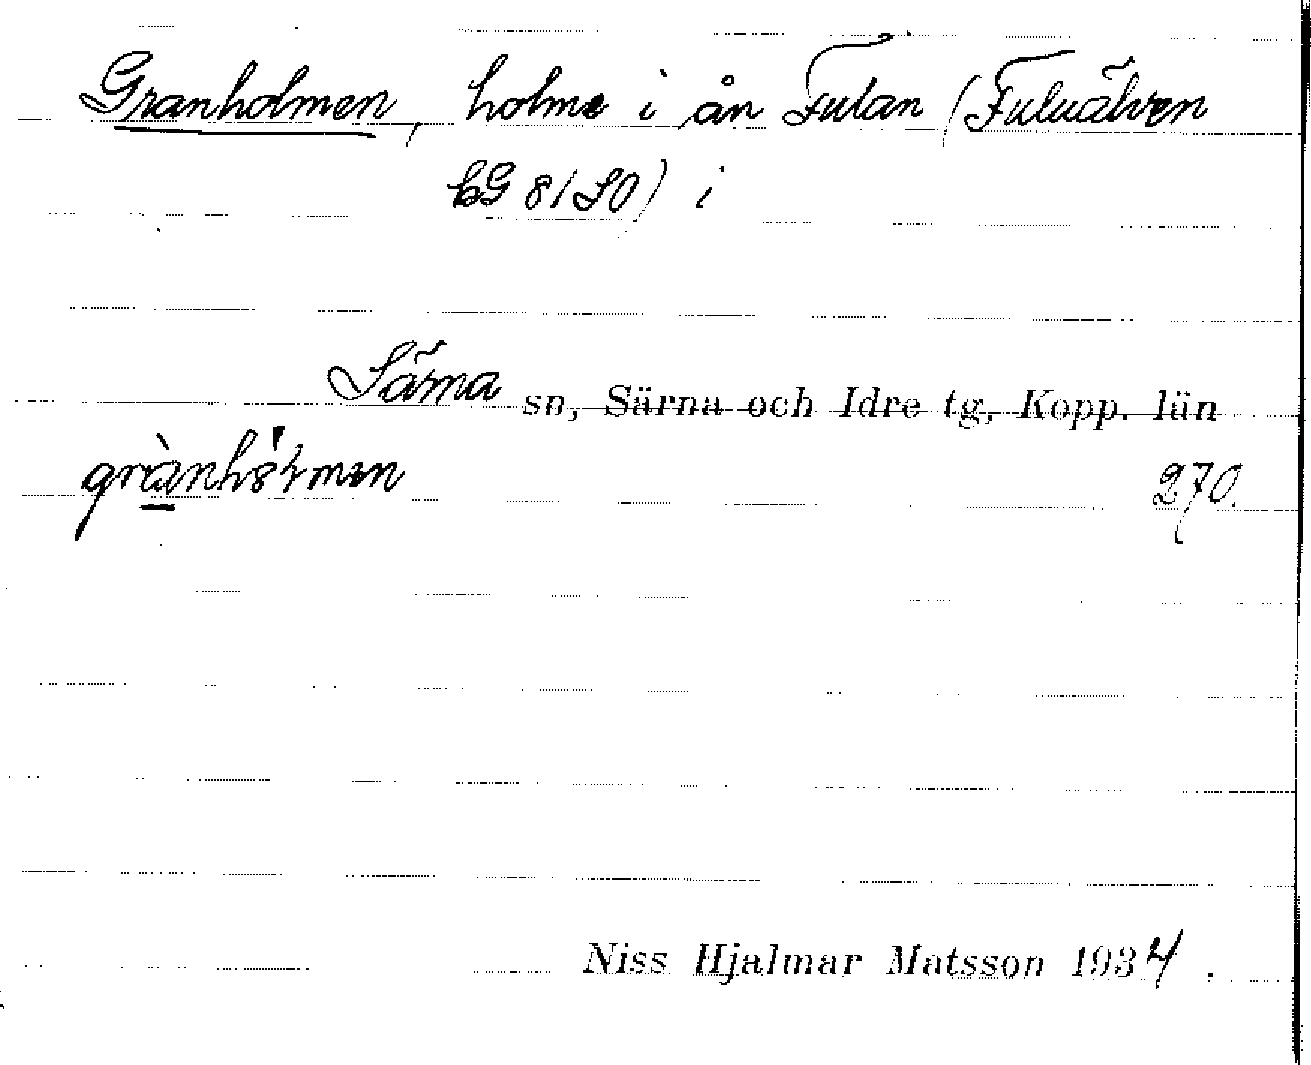 Granholmen, holme i ån Fulan (Fuluälven
GG 81 SO) i
Särna sn, Särna och Idre tg, Kopp. län
270.
Niss Hjalmar Matsson 1934.